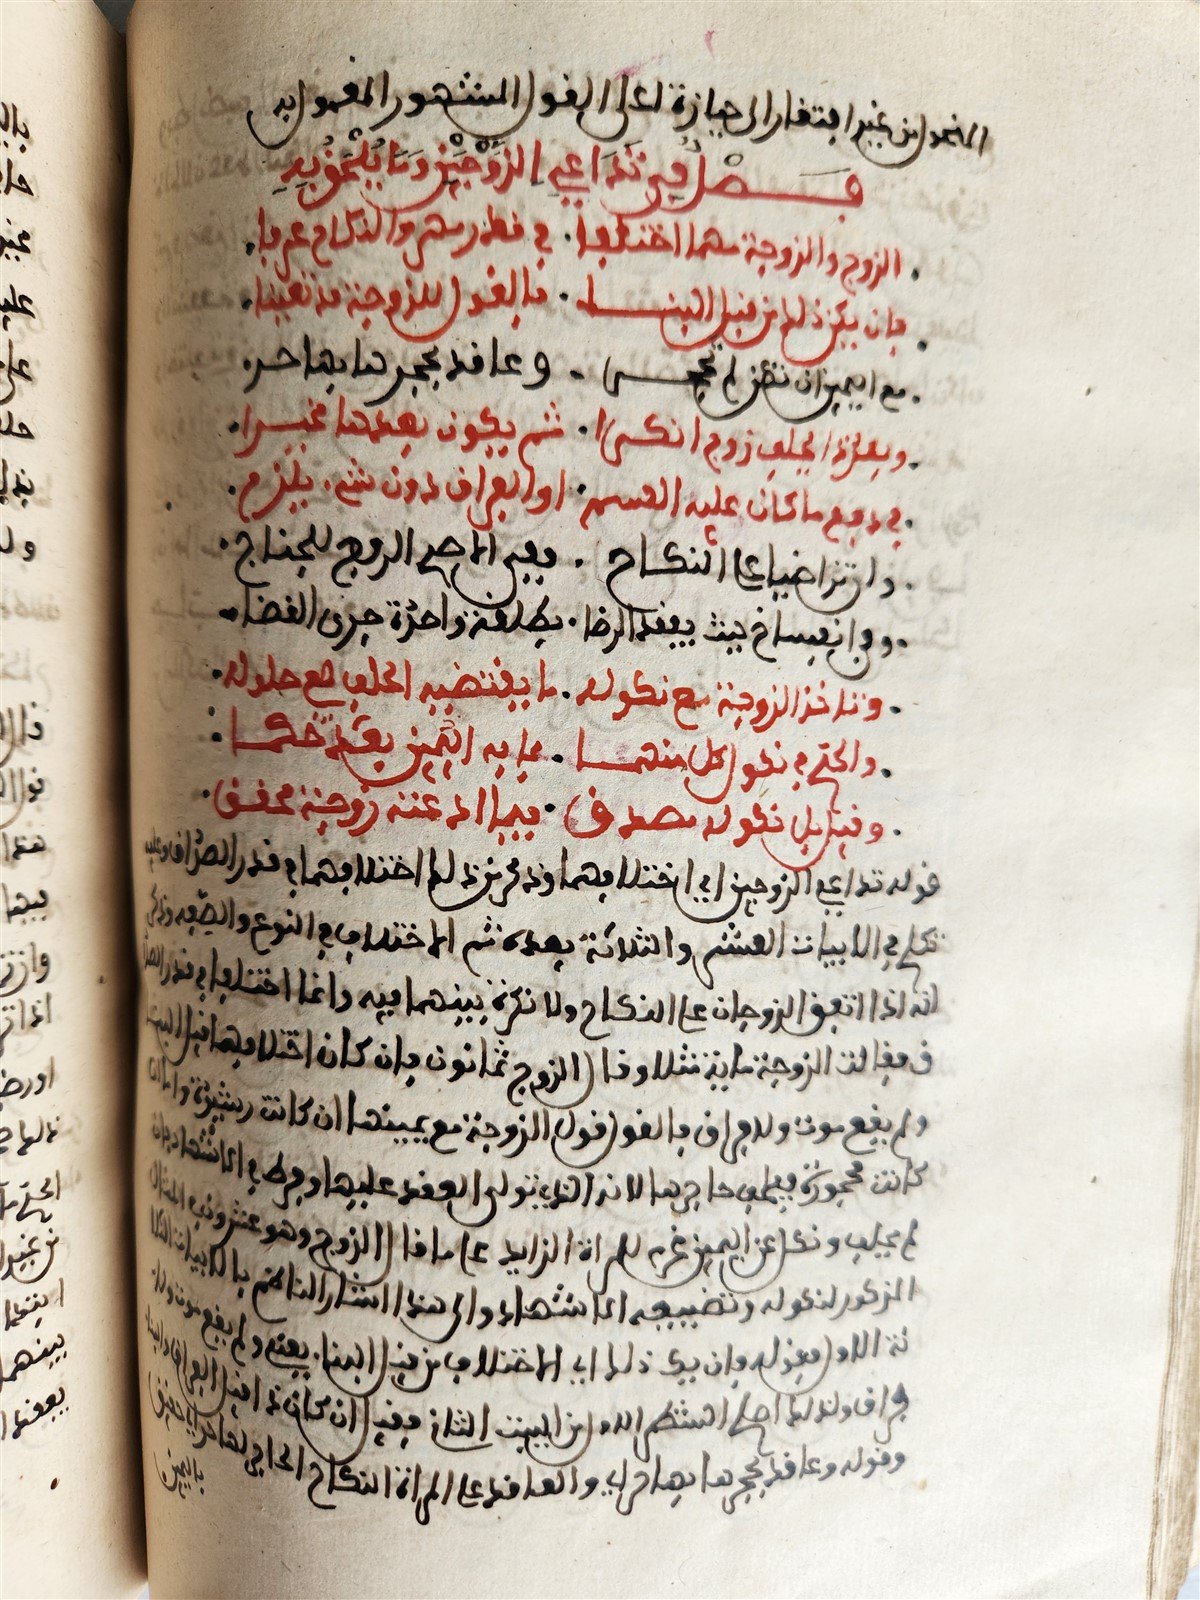 المنحول من غير افتقار الى حيازة على القول المشهور المعمول به
فصل في تداعي الزوجين وما يلحق به
الزوج والزوجة مهما اختلفا . في قدر مهر والنكاح عرفا
فان يكن ذاك من قبل البنا . فالقول للزوجة قد تعينا
مع اليمين ان تكن لم تحجر . وعاقد لحجرها بها حر
وبعد ذا يحلف زوج انكرا . ثم يكون بعدها مخيرا
في دفع ما كان عليه القسم . او الفراق دون شيء يلزم
وان تراضيا على النكاح . ففي الاصح الرفع للجناح
وفي انفساخ حيث يفقد الرضا . بطلقة واحدة جرى القضا
وتاخذ الزوجة مع نكوله . ما يقتضيه الحلف مع حلوله
والحكم في نكول كل منهما . بما به اليمين بعد حكما
وقيل بل نكوله مصدق . فيما ادعته زوجة محقق
قوله تداعي الزوجين اي اختلافهما وذكر من ذلك اختلافهما في قدر الصداق وعليه
تكلم في الابيات العشر والثلاثة بعده ثم الاختلاف في النوع والصفة وذكر
انه اذا اتفق الزوجان على النكاح ولا نكرة بينهما فيه وانما اختلفا في قدر الصدا
ق فقالت الزوجة ماية مثلا وقال الزوج ثمانون فان كان اختلافهما قبل البناء
ولم يقع موت ولا فراق فالقول قول الزوجة مع يمينها ان كانت رشيدة واما ان
كانت محجورة فيحلف حاجرها لانه الذي تولى العقد عليها وفرط في الاشهاد فان
لم يحلف ونكل عن اليمين غرم للمراة الزايد على ما قال الزوج وهو عشرون في المثال
المذكور لنكوله وتضييعه الاشهاد والى هذا اشار الناظم بالابيات الثلا
ثة الاول فقوله وان يك ذلك اي الاختلاف من قبل البنا يعني ولم يقع موت ولا
فراق ولذلك اصلح الشطر الاول من البيت الثاني فقيل ان كان ذا قبل الفراق والبنا
وقوله وعاقد لحجرها بها حر اي والعاقد على المراة النكاح الحاجر لها حر اي حقيق
باليمين